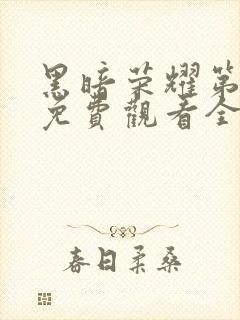 黑暗荣耀第
免費觀看全
春日柔桑